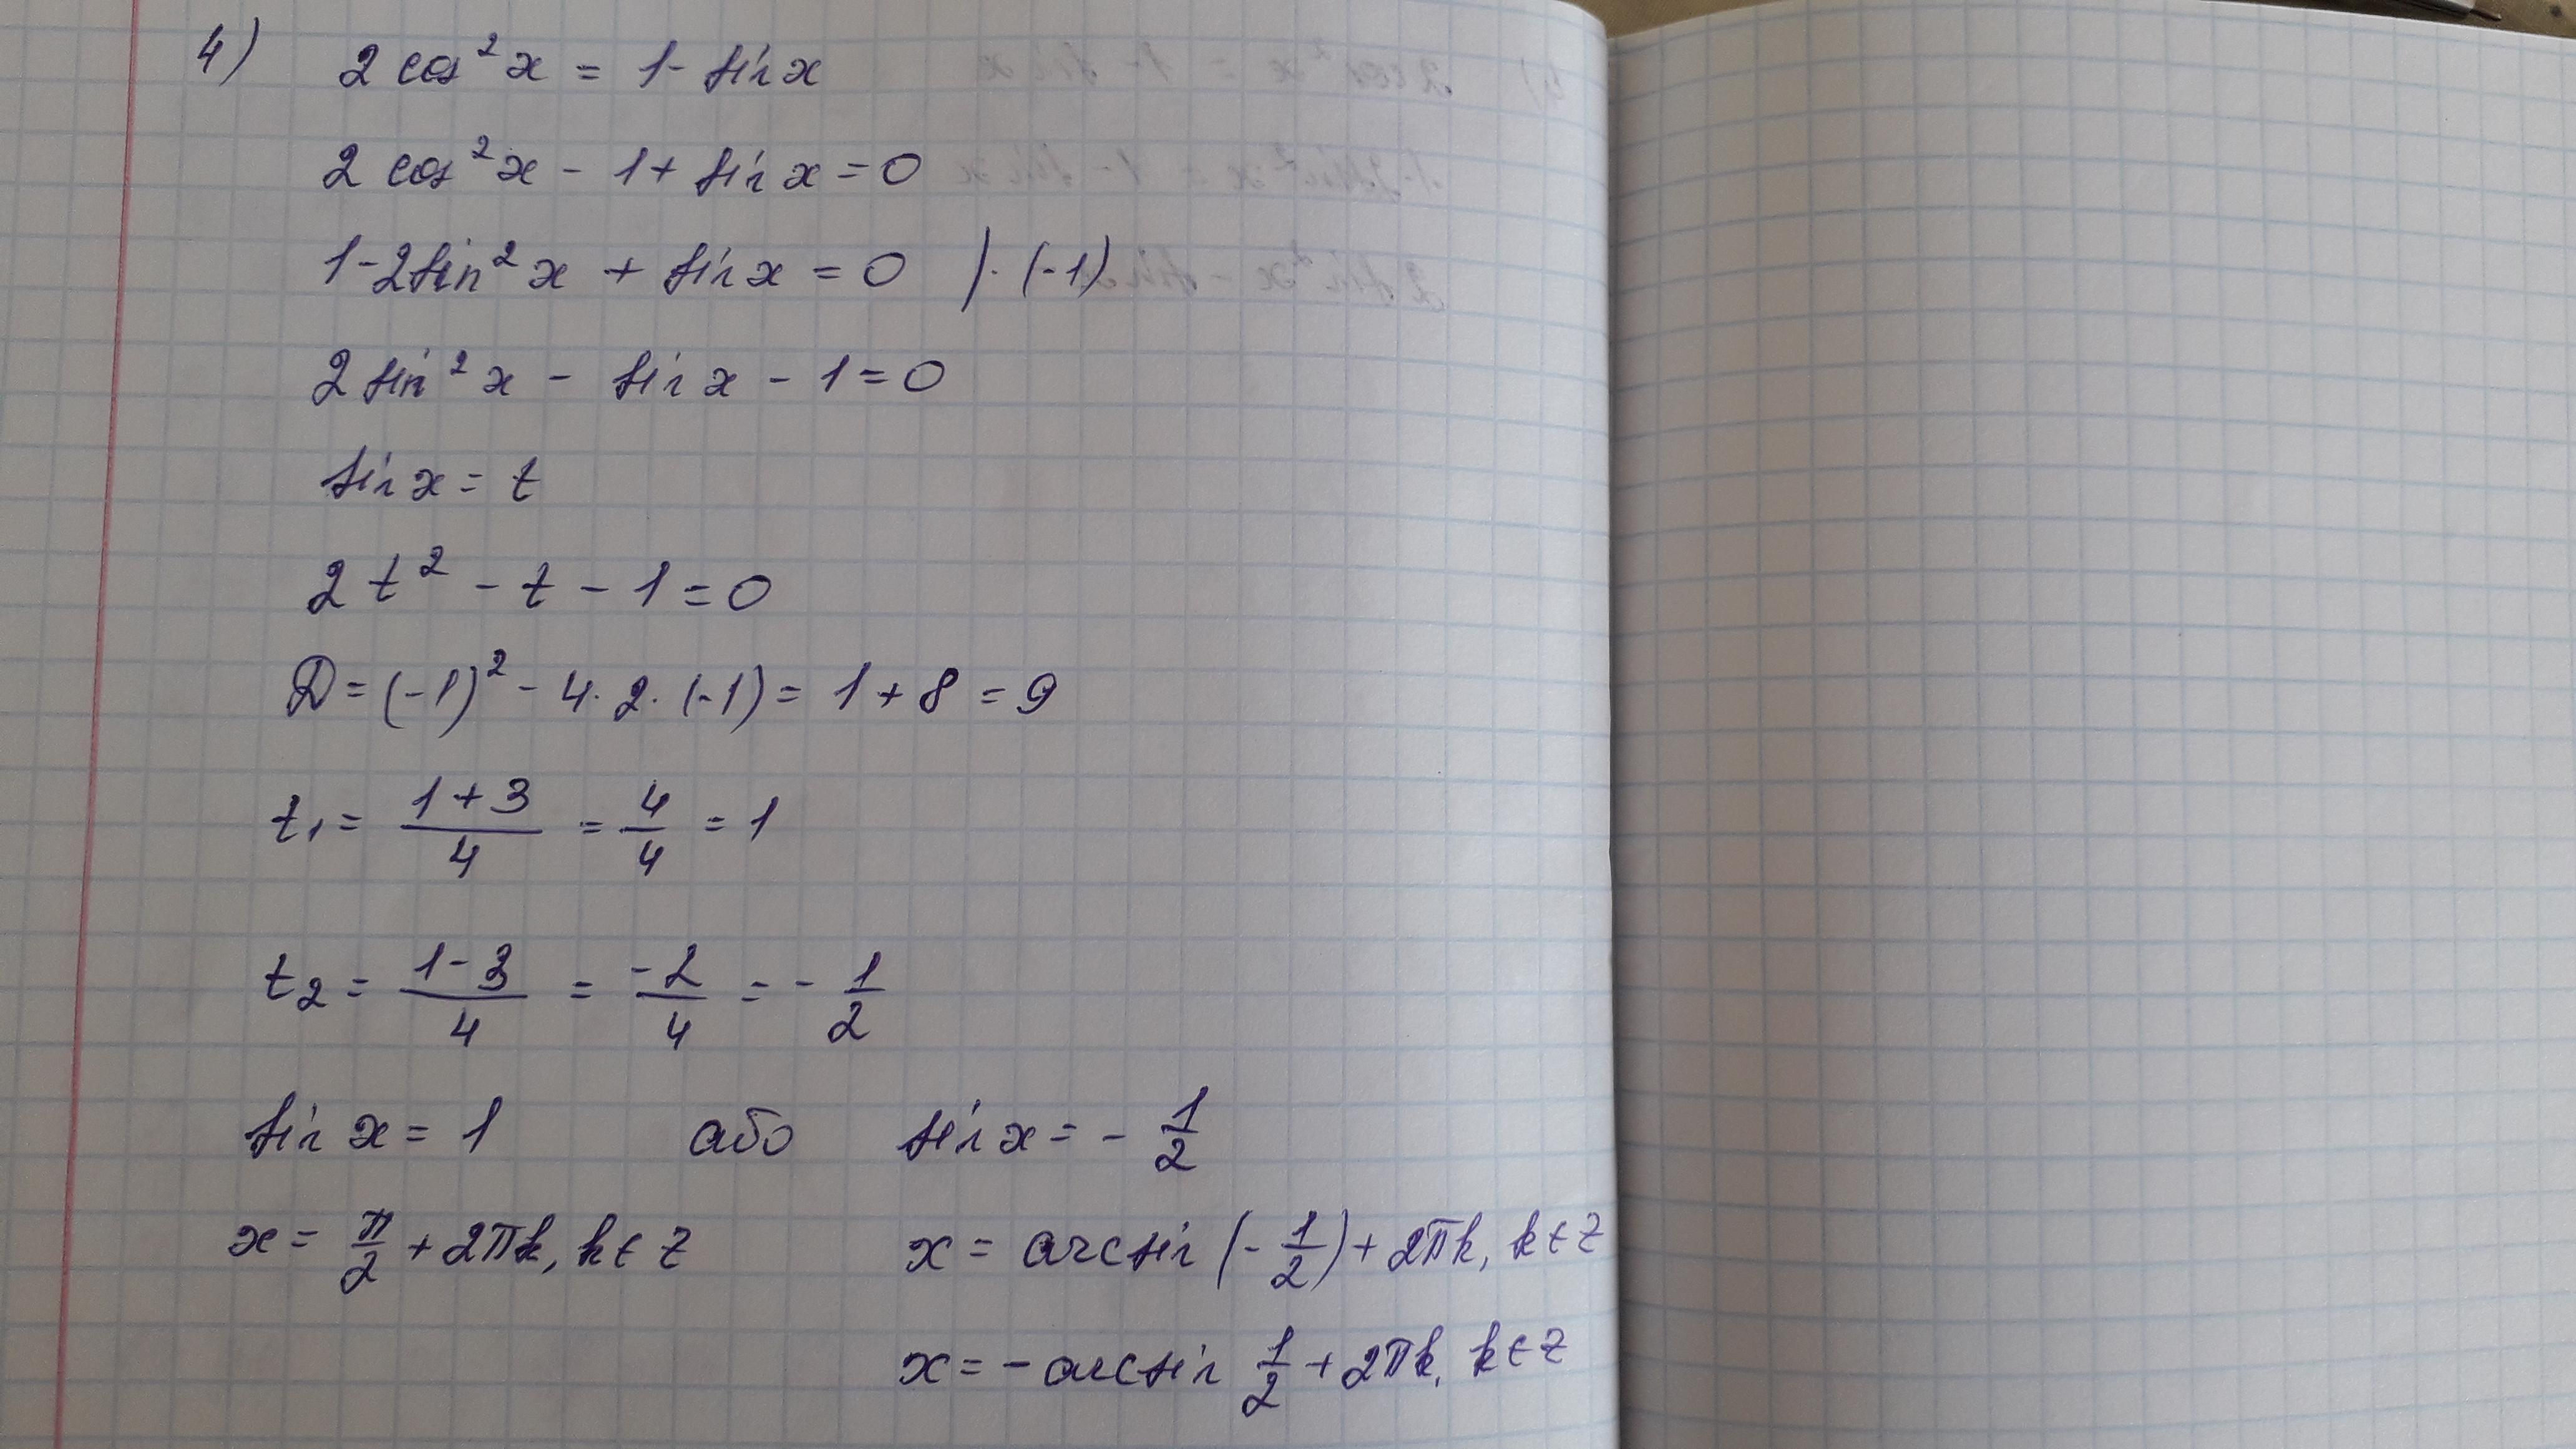 4) 2 cos² x = 1 - sin x
2 cos² x - 1 + sin x = 0
1 - 2 sin² x + sin x = 0 | · (-1)
2 sin² x - sin x - 1 = 0
sin x = t
2 t² - t - 1 = 0
D = (-1)² - 4 · 2 · (-1) = 1 + 8 = 9
t₁ = (1+3)/4 = 4/4 = 1
t₂ = (1-3)/4 = -2/4 = - 1/2
sin x = 1 або sin x = - 1/2
x = π/2 + 2πk, k ∈ Z x = arcsin (- 1/2) + 2πk, k ∈ Z
x = - arcsin 1/2 + 2πk, k ∈ Z